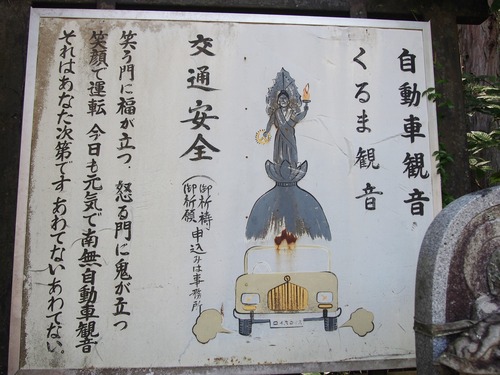 自動車観音
くるま観音
交通安全
(御祈祷
御祈願)申込みは事務所
笑う門に福が立つ、怒る門に鬼が立つ
笑顔で運転 今日も元気で南無自動車観音
それはあなた次第です あわてないあわてない